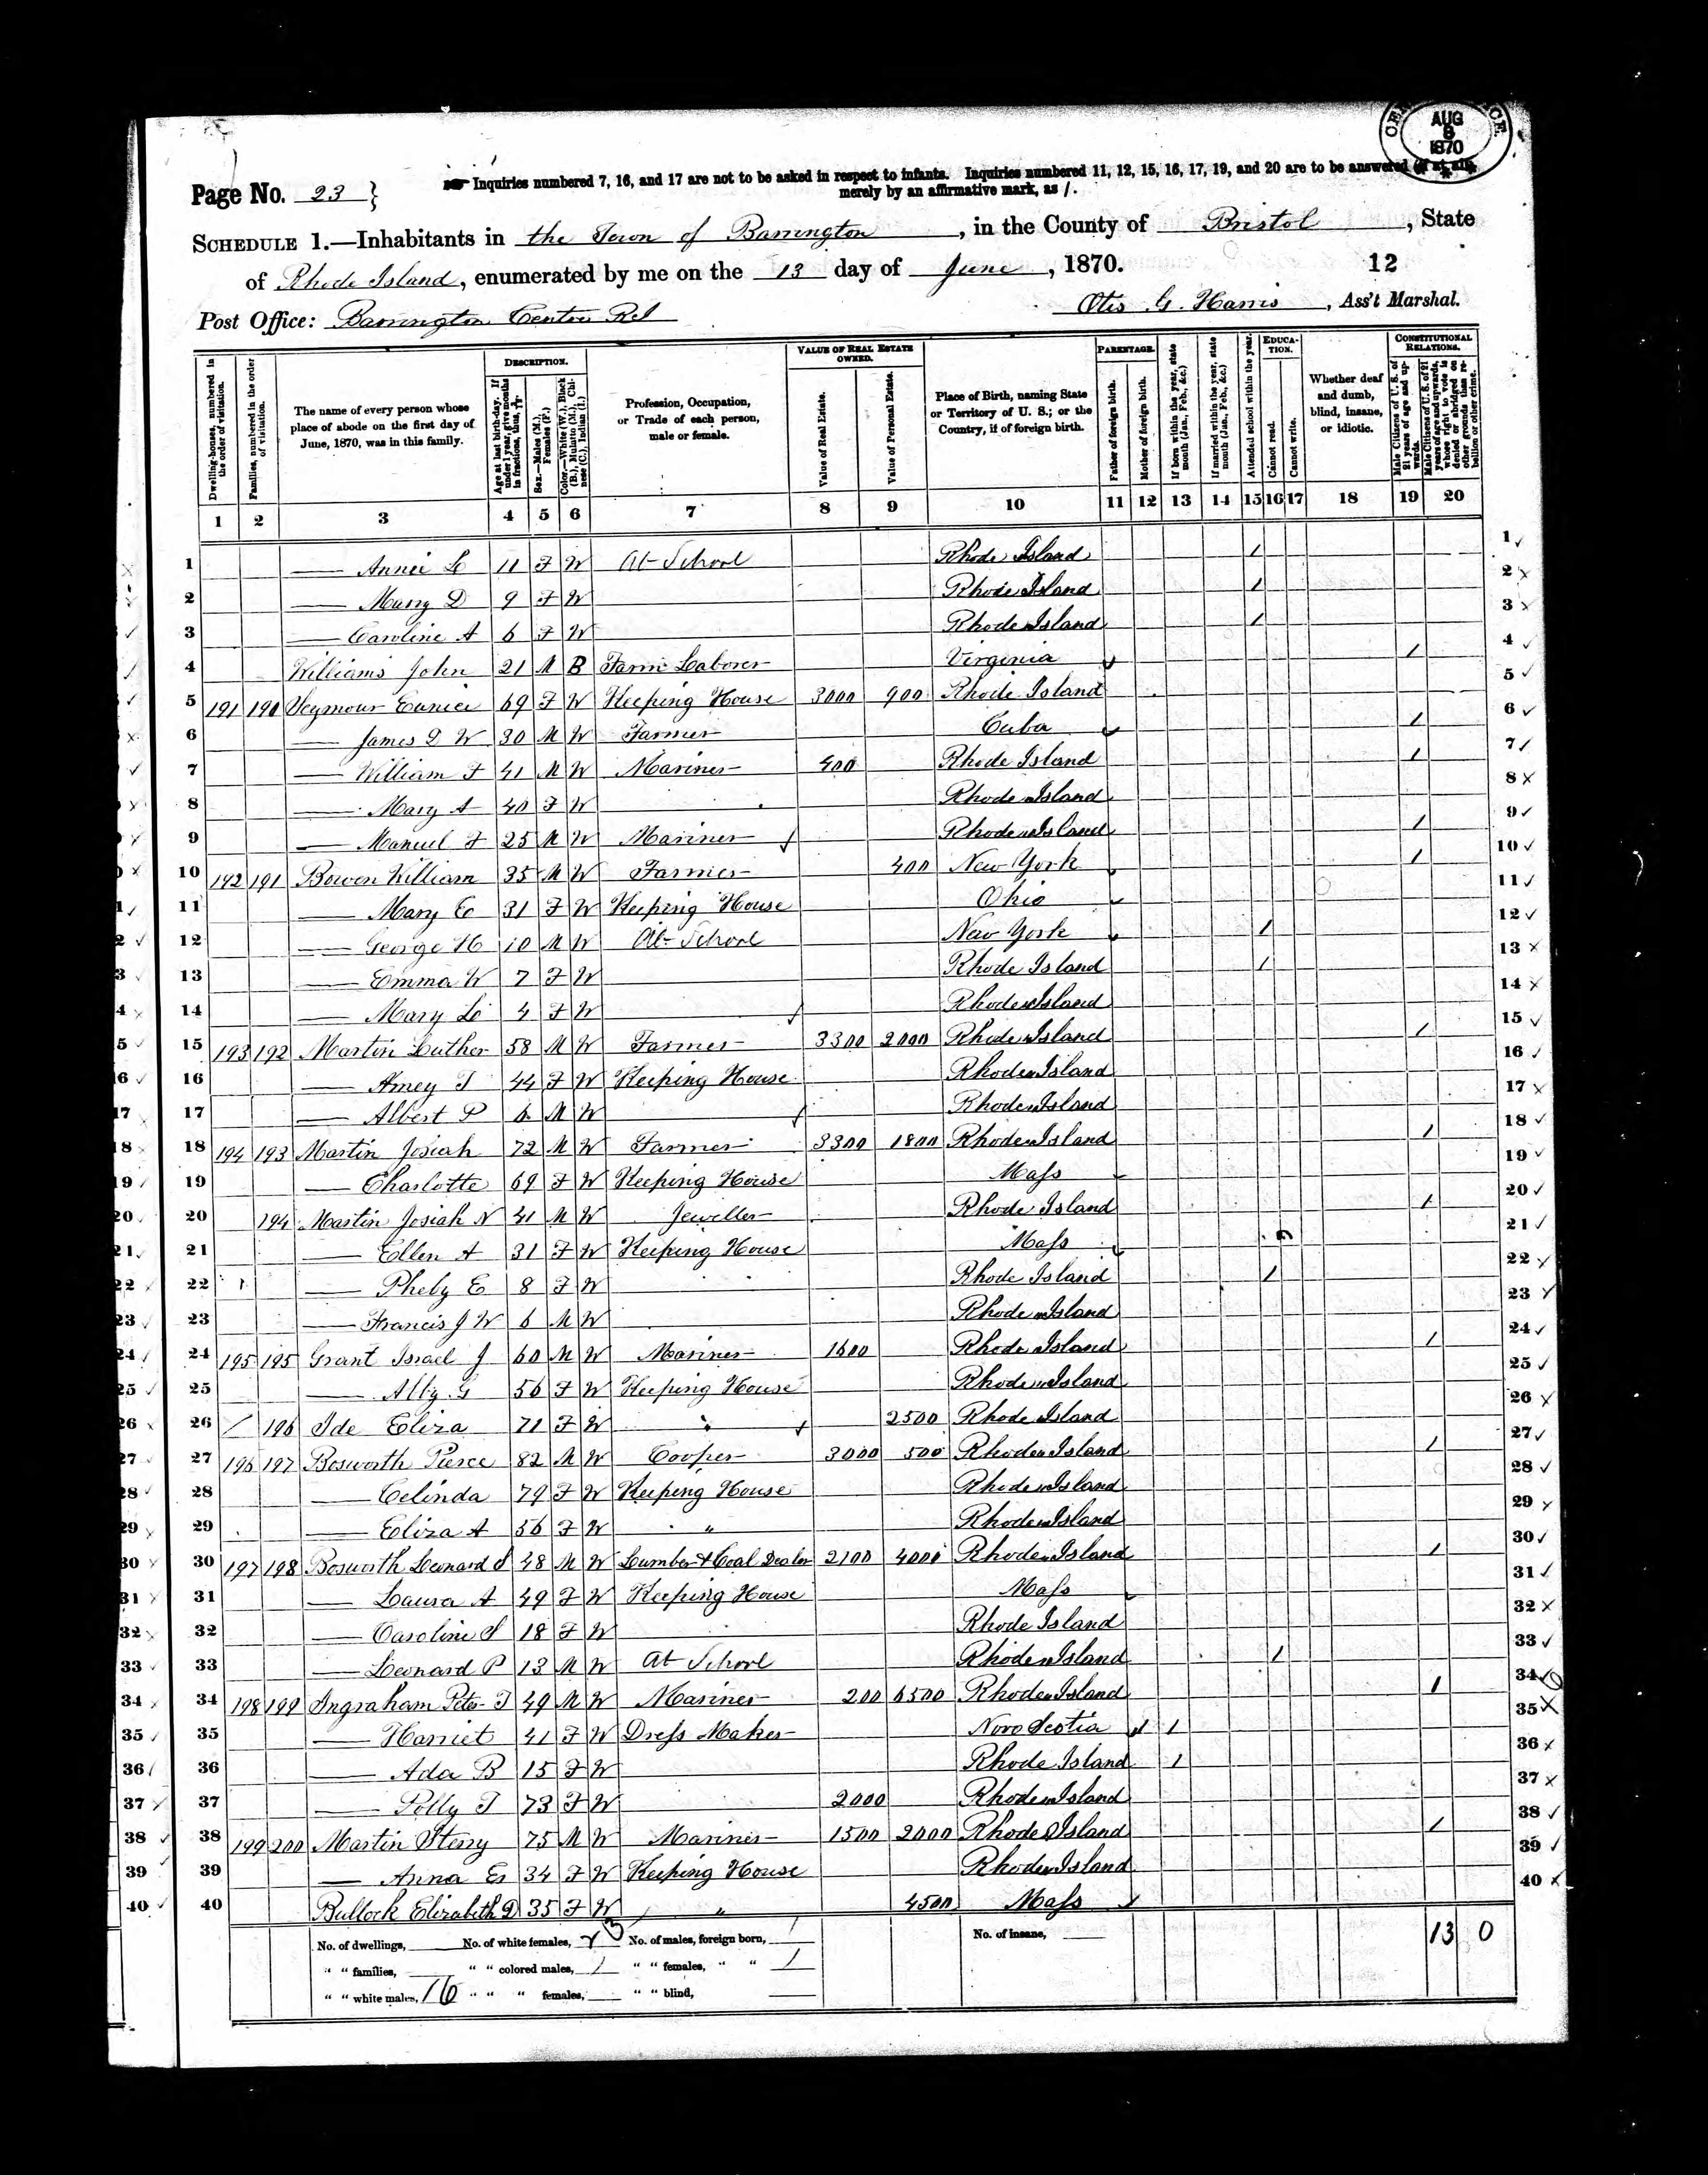 CE CE.
AUG
8
1870
Page No. 23 }
Inquiries numbered 7, 16, and 17 are not to be asked in respect to infants. Inquiries numbered 11, 12, 15, 16, 17, 19, and 20 are to be answered (if at all)
merely by an affirmative mark, as /.
SCHEDULE 1.—Inhabitants in the Town of Barrington, in the County of Bristol, State
of Rhode Island, enumerated by me on the 13 day of June, 1870. 12
Post Office: Barrington Centre R I
Otis G. Harris, Ass't Marshal.
Dwelling-houses, numbered in the order of visitation.
Families, numbered in the order of visitation.
The name of every person whose place of abode on the first day of June, 1870, was in this family.
DESCRIPTION.
Age at last birth-day. If under 1 year, give months in fractions, thus,
Sex.—Males (M.), Females (F.)
Color.—White (W.), Black (B.), Mulatto (M.), Chinese (C.), Indian (I.)
Profession, Occupation, or Trade of each person, male or female.
VALUE OF REAL ESTATE OWNED.
Value of Real Estate.
Value of Personal Estate.
Place of Birth, naming State or Territory of U. S.; or the Country, if of foreign birth.
PARENTAGE.
Father of foreign birth.
Mother of foreign birth.
If born within the year, state month (Jan., Feb., &c.)
If married within the year, state month (Jan., Feb., &c.)
Attended school within the year.
EDUCATION.
Cannot read.
Cannot write.
Whether deaf and dumb, blind, insane, or idiotic.
CONSTITUTIONAL RELATIONS.
Male Citizens of U. S. of 21 years of age and upwards.
Male Citizens of U. S. of 21 years of age and upwards, whose right to vote is denied or abridged on other grounds than rebellion or other crime.
1 2 3 4 5 6 7 8 9 10 11 12 13 14 15 16 17 18 19 20
1 — Annie L 11 F W At School Rhode Island / 1
2 — Mary D 9 F W Rhode Island / 2
3 — Caroline A 6 F W Rhode Island / 3
4 Williams John 21 M B Farm Laborer Virginia / 4
5 191 190 Seymour Eunice 69 F W Keeping House 3000 900 Rhode Island 5
6 — James D W 30 M W Farmer Cuba / 6
7 — William F 41 M W Mariner 400 Rhode Island / 7
8 — Mary A 40 F W Rhode Island 8
9 — Manuel F 25 M W Mariner Rhode Island / 9
10 192 191 Bowen William 35 M W Farmer 400 New York / 10
11 — Mary E 31 F W Keeping House Ohio 11
12 — George H 10 M W At School New York / 12
13 — Emma W 7 F W Rhode Island / 13
14 — Mary L 4 F W Rhode Island 14
15 193 192 Martin Luther 58 M W Farmer 3300 2000 Rhode Island / 15
16 — Amey T 44 F W Keeping House Rhode Island 16
17 — Albert P 6 M W Rhode Island 17
18 194 193 Martin Josiah 72 M W Farmer 3300 1800 Rhode Island / 18
19 — Charlotte 69 F W Keeping House Mass 19
20 194 Martin Josiah N 41 M W Jeweller Rhode Island / 20
21 — Ellen A 31 F W Keeping House Mass 21
22 — Pheby E 8 F W Rhode Island / 22
23 — Francis J W 6 M W Rhode Island 23
24 195 195 Grant Israel J 60 M W Mariner 1600 Rhode Island / 24
25 — Alby G 56 F W Keeping House Rhode Island 25
26 / 196 Ide Eliza 71 F W " 2500 Rhode Island 26
27 196 197 Bosworth Pierce 82 M W Cooper 3000 500 Rhode Island / 27
28 — Celinda 79 F W Keeping House Rhode Island 28
29 — Eliza A 56 F W " Rhode Island 29
30 197 198 Bosworth Leonard S 48 M W Lumber & Coal Dealer 2100 4000 Rhode Island / 30
31 — Laura A 49 F W Keeping House Mass 31
32 — Caroline S 18 F W Rhode Island 32
33 — Leonard P 13 M W At School Rhode Island / 33
34 198 199 Ingraham Peter T 49 M W Mariner 200 6500 Rhode Island / 34
35 — Harriet 41 F W Dress Maker Nova Scotia / / 35
36 — Ada B 15 F W Rhode Island / 36
37 — Polly T 73 F W 2000 Rhode Island 37
38 199 200 Martin Sterry 75 M W Mariner 1500 2000 Rhode Island / 38
39 — Anna E 34 F W Keeping House Rhode Island 39
40 Bullock Elizabeth D 35 F W " 4500 Mass 40
No. of dwellings, No. of white females, No. of males, foreign born, / No. of insane, 13 0
" " families, " " colored males, / " " females, " " /
" " white males, 16 " " " females, " " blind,